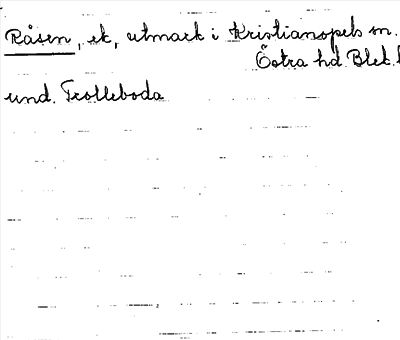 Råsen, ek, utmark i Kristianopels sn.
Östra hd Blek.
und. Trolleboda